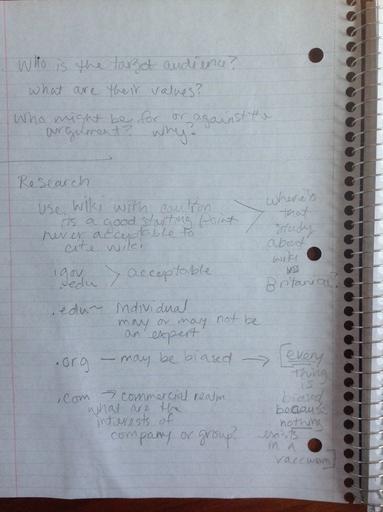 Who is the target audience?
what are their values?
Who might be for or against the
argument? why?
Research
use wiki with caution
its a good starting point
never acceptable to
cite wiki
where's
that
study
about
wiki
vs
Britanica?
.gov
.edu > acceptable
.edu~ individual
may or may not be
an expert
.org — may be biased → [every
thing
is
biased
because
nothing
exists
in a
vaccuum]
.com → commercial realm
what are the
interests of
company or group?